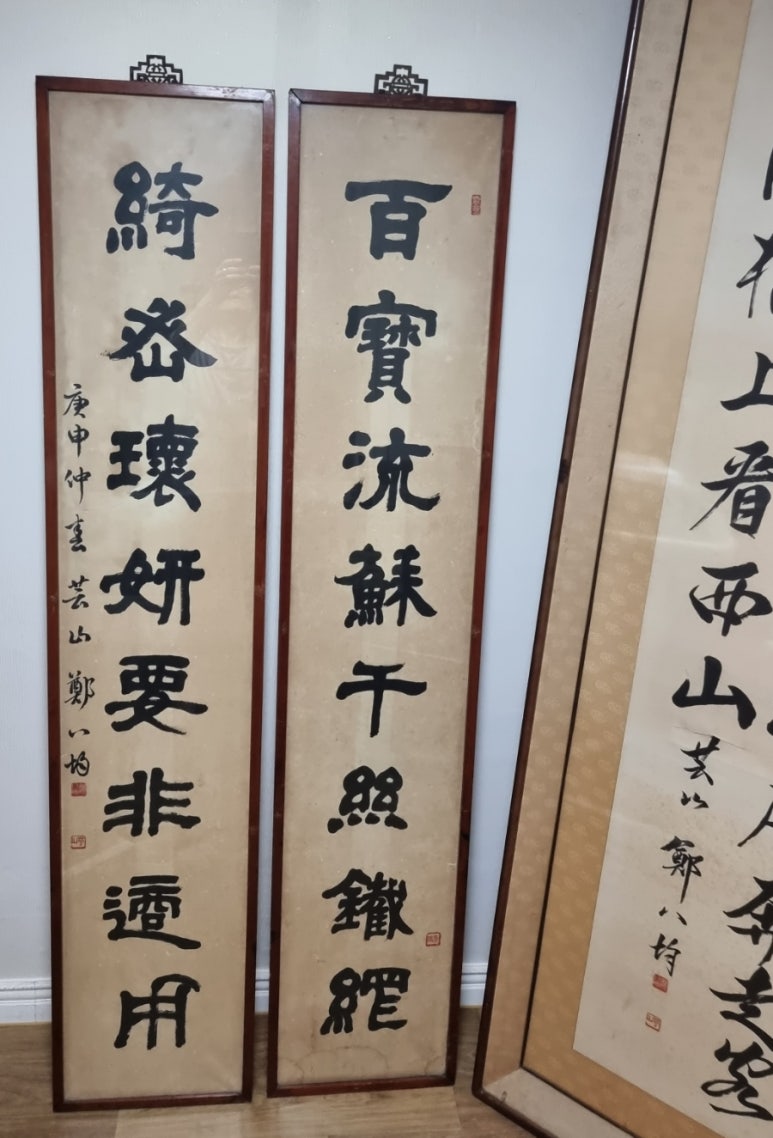 百寶流穌千絲鐵網
綺密瓌妍要非適用
庚申仲春 芸山 鄭八均
奔走客
上看西山
芸山 鄭八均